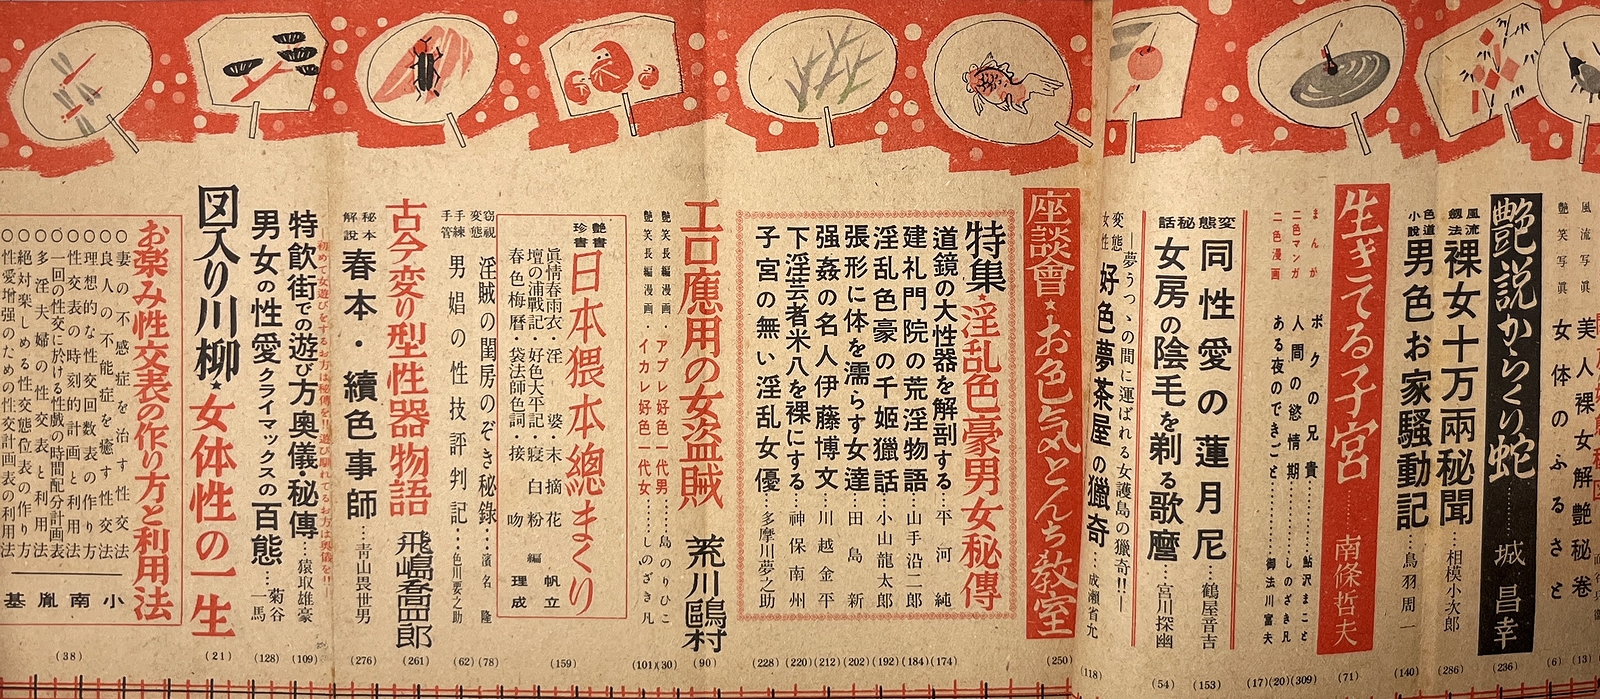 風流写真
艶笑写真
美人裸女解艶秘巻
女体のふるさと
(13)
(6)
艶説からくり蛇……城昌幸
(236)
風流剣法
裸女十万両秘聞…相模小次郎
(286)
色道小説
男色お家騒動記…鳥羽周一
(140)
生きてる子宮……南條哲夫
(71)
まんが
ボクの兄貴……鮎沢まこと
(309)
二色マンガ
人間の慾情期……しのざき凡
(20)
二色漫画
ある夜のできごと……御法川富夫
(17)
変態秘話
同性愛の蓮月尼…鶴屋音吉
(153)
女房の陰毛を剃る歌麿…宮川探幽
(54)
―夢うつゝの間に運ばれる女護島の獵奇!!―
変態女性
好色夢茶屋の獵奇…成瀬省九
(118)
座談會★お色気とんち教室
(250)
特集★淫乱色豪男女秘傳
道鏡の大性器を解剖する…平河純
(174)
建礼門院の荒淫物語…山手沿二郎
(184)
淫乱色豪の千姫獵話…小山龍太郎
(192)
張形に体を濡らす女達…田島新
(202)
强姦の名人伊藤博文…川越金平
(212)
下淫芸者米八を裸にする…神保南州
(220)
子宮の無い淫乱女優…多摩川夢之助
(228)
エロ應用の女盗賊 荒川鷗村
(90)
艶笑長編漫画・アプレ好色一代男……島のりひこ
(30)
艶笑長編漫画・イカレ好色一代女……しのざき凡
(101)
艶書珍書
日本猥本總まくり
眞情春雨衣・淫婆・末摘花
壇の浦戰記・好色大平記・寝白粉
春色梅暦・袋法師色詞・接吻
編 帆立理成
(159)
窃視変態
淫賊の閨房のぞき秘錄…濱名隆
(78)
手練手管
男娼の性技評判記…色川要之助
(62)
古今変り型性器物語 飛嶋喬四郎
(261)
秘本解説
春本・續色事師…青山畏世男
(276)
―初めて女遊びをするお方は秘傳を!!遊び馴れてるお方は奥儀を!!―
特飲街での遊び方奥儀秘傳…猿取雄豪
(109)
男女の性愛クライマックスの百態…菊谷一馬
(128)
図入り川柳★女体性の一生
(21)
お楽み性交表の作り方と利用法
〇妻の不感症を治す性交法
〇良人の不能症を癒す性交法
〇理想的な性交回数表の作り方
〇性交表の時刻的計画と利用法
〇一回の性交に於ける性戯の時間配分計画表
〇多淫夫婦の性交表と利用法
〇絶対楽しめる性交態位表の作り方
〇性愛増强のための性交計画表の利用法
小南胤基
(38)